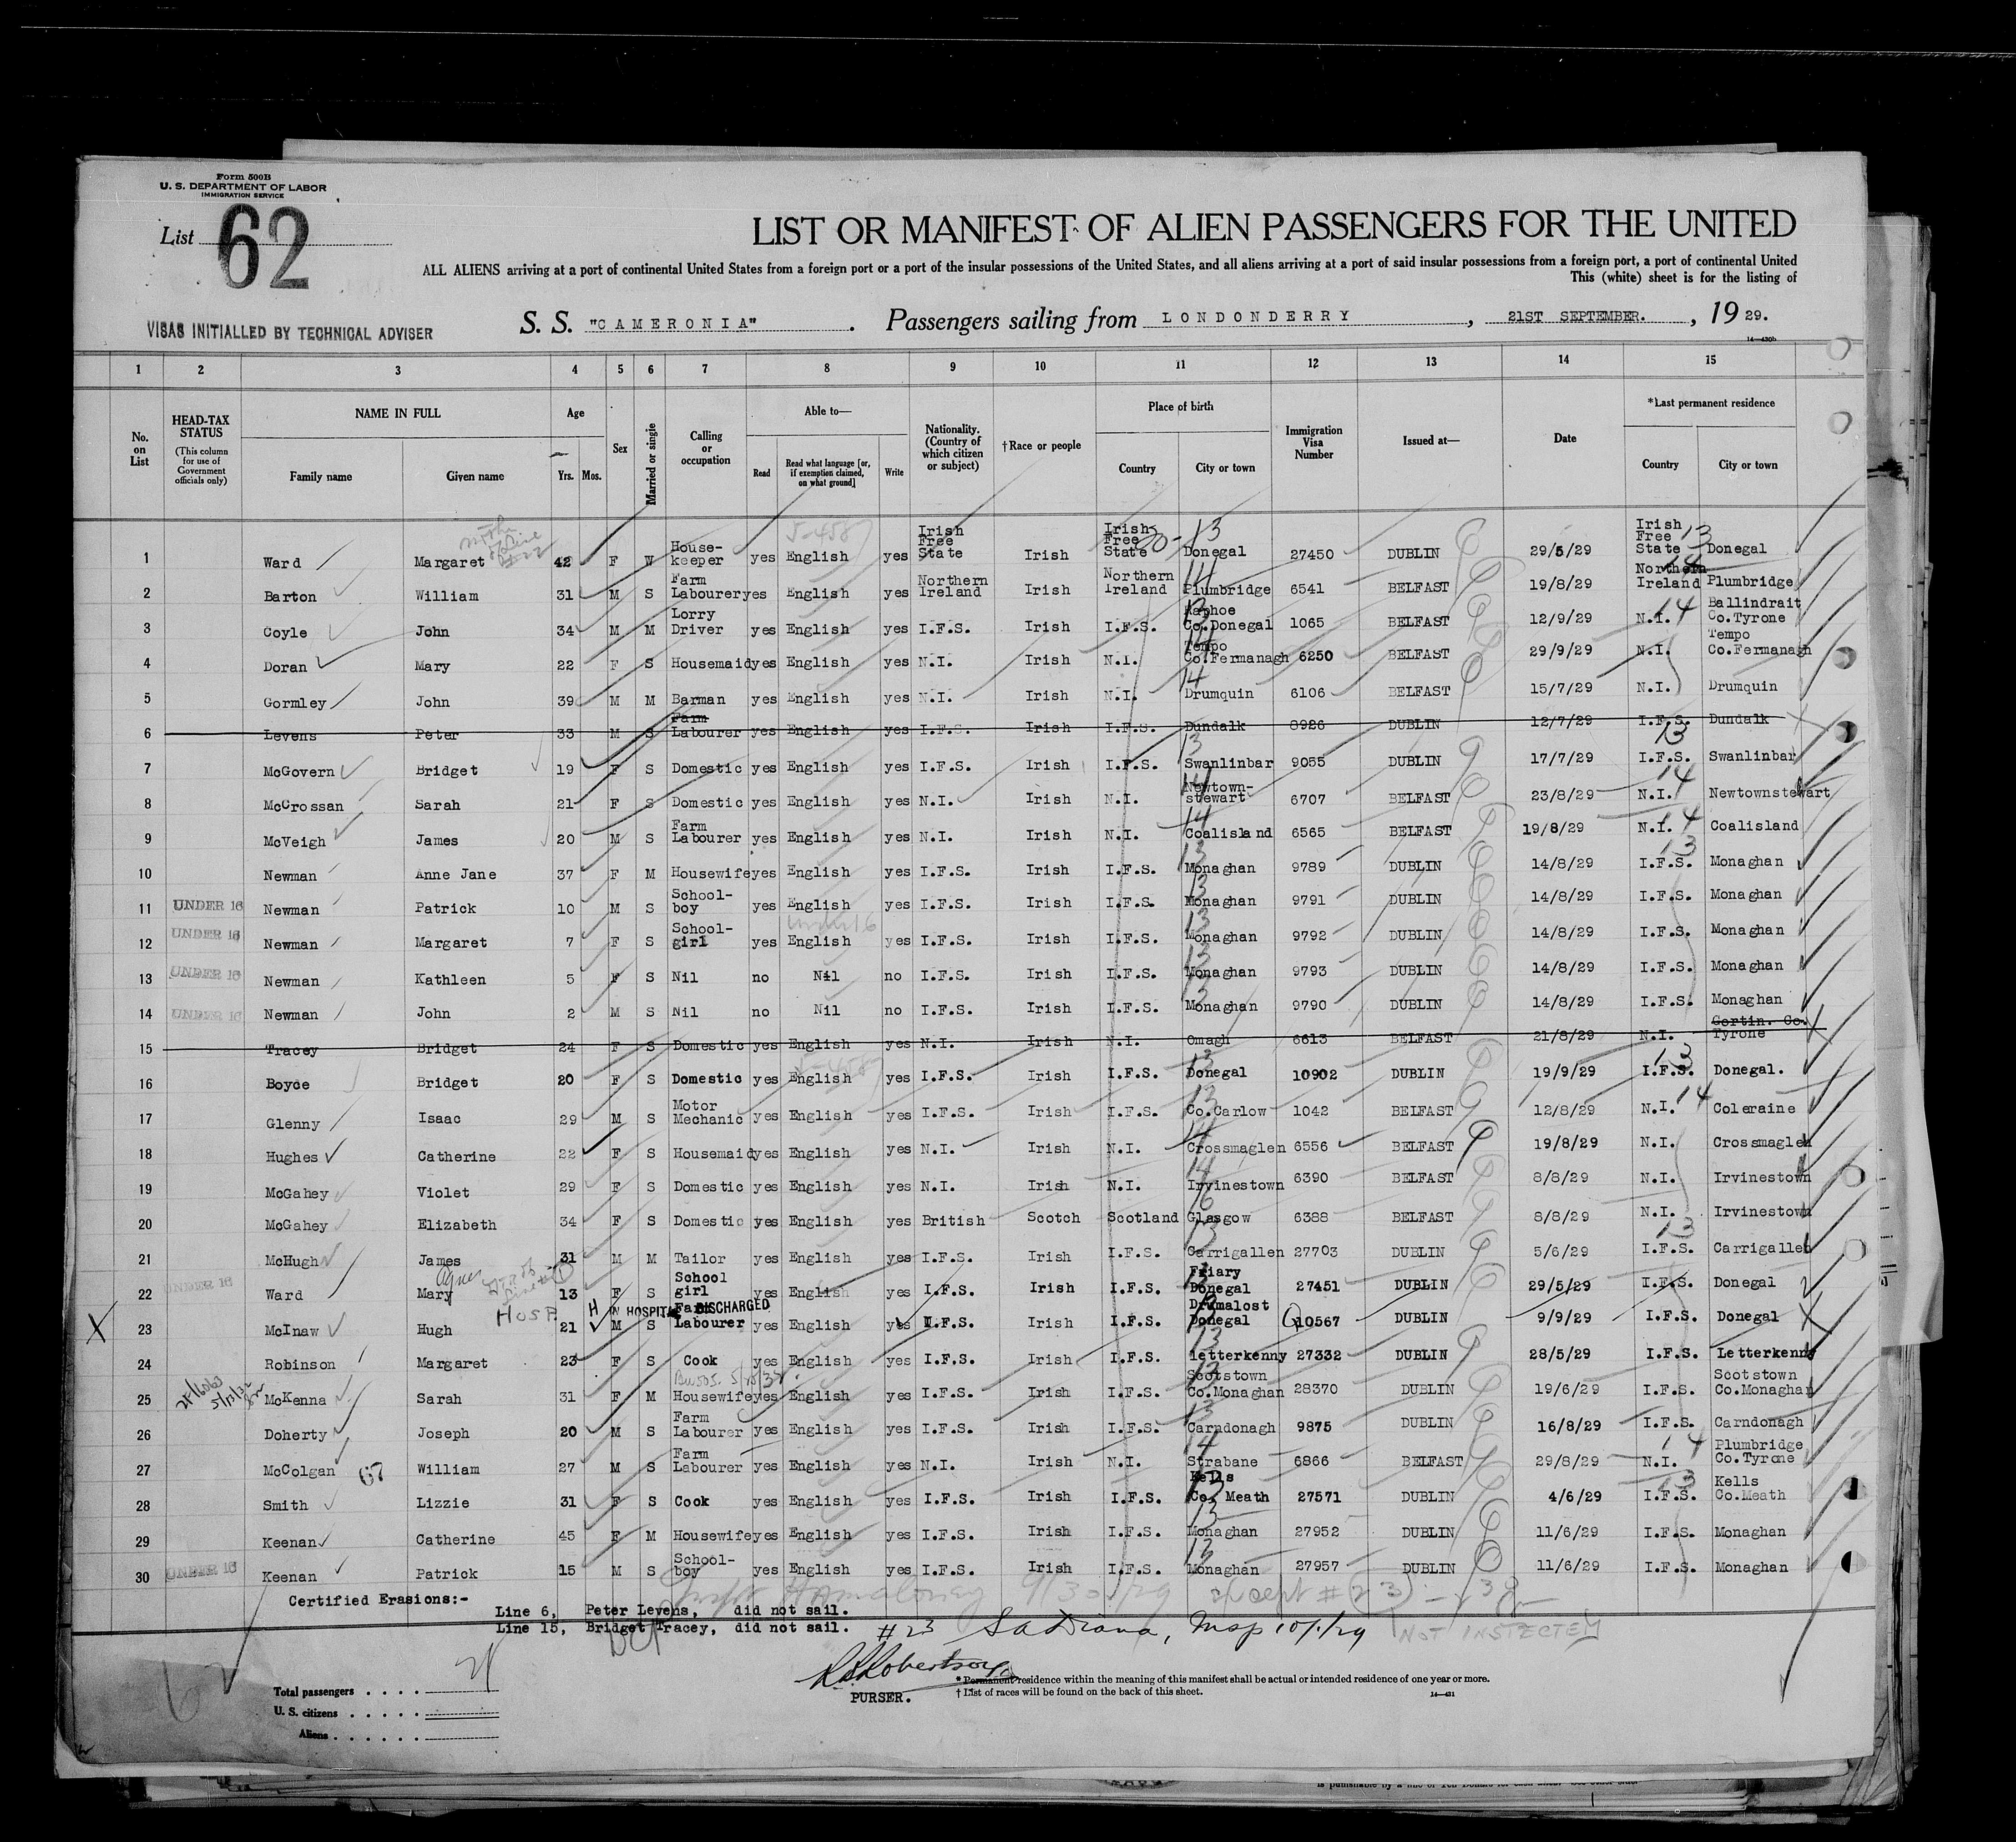 Form 500B
U. S. DEPARTMENT OF LABOR
IMMIGRATION SERVICE
List 62
LIST OR MANIFEST OF ALIEN PASSENGERS FOR THE UNITED
ALL ALIENS arriving at a port of continental United States from a foreign port or a port of the insular possessions of the United States, and all aliens arriving at a port of said insular possessions from a foreign port, a port of continental United
This (white) sheet is for the listing of
VISAS INITIALLED BY TECHNICAL ADVISER
S. S. "CAMERONIA" . Passengers sailing from LONDONDERRY , 21ST SEPTEMBER. , 19 29.
1 2 3 4 5 6 7 8 9 10 11 12 13 14 15
No. on List
HEAD-TAX STATUS (This column for use of Government officials only)
NAME IN FULL Family name Given name
Age Yrs. Mos.
Sex
Married or single
Calling or occupation
Able to— Read Read what language [or, if exemption claimed, on what ground] Write
Nationality. (Country of which citizen or subject)
†Race or people
Place of birth Country City or town
Immigration Visa Number
Issued at—
Date
*Last permanent residence Country City or town
1 Ward Margaret 42 F W House-keeper yes English yes Irish Free State Irish Irish Free State Donegal 27450 DUBLIN 29/5/29 Irish Free State Donegal
2 Barton William 31 M S Farm Labourer yes English yes Northern Ireland Irish Northern Ireland Plumbridge 6541 BELFAST 19/8/29 Northern Ireland Plumbridge
3 Coyle John 34 M M Lorry Driver yes English yes I.F.S. Irish I.F.S. Raphoe Co.Donegal 1065 BELFAST 12/9/29 N.I. Ballindrait Co.Tyrone
4 Doran Mary 22 F S Housemaid yes English yes N.I. Irish N.I. Tempo Co.Fermanagh 6250 BELFAST 29/9/29 N.I. Tempo Co.Fermanagh
5 Gormley John 39 M M Barman yes English yes N.I. Irish N.I. Drumquin 6106 BELFAST 15/7/29 N.I. Drumquin
6 Levens Peter 33 M S Farm Labourer yes English yes I.F.S. Irish I.F.S. Dundalk 8926 DUBLIN 12/7/29 I.F.S. Dundalk
7 McGovern Bridget 19 F S Domestic yes English yes I.F.S. Irish I.F.S. Swanlinbar 9055 DUBLIN 17/7/29 I.F.S. Swanlinbar
8 McCrossan Sarah 21 F S Domestic yes English yes N.I. Irish N.I. Newtown-stewart 6707 BELFAST 23/8/29 N.I. Newtownstewart
9 McVeigh James 20 M S Farm Labourer yes English yes N.I. Irish N.I. Coalisland 6565 BELFAST 19/8/29 N.I. Coalisland
10 Newman Anne Jane 37 F M Housewife yes English yes I.F.S. Irish I.F.S. Monaghan 9789 DUBLIN 14/8/29 I.F.S. Monaghan
11 UNDER 16 Newman Patrick 10 M S School-boy yes English yes I.F.S. Irish I.F.S. Monaghan 9791 DUBLIN 14/8/29 I.F.S. Monaghan
12 UNDER 16 Newman Margaret 7 F S School-girl yes English yes I.F.S. Irish I.F.S. Monaghan 9792 DUBLIN 14/8/29 I.F.S. Monaghan
13 UNDER 16 Newman Kathleen 5 F S Nil no Nil no I.F.S. Irish I.F.S. Monaghan 9793 DUBLIN 14/8/29 I.F.S. Monaghan
14 UNDER 16 Newman John 2 M S Nil no Nil no I.F.S. Irish I.F.S. Monaghan 9790 DUBLIN 14/8/29 I.F.S. Monaghan
15 Tracey Bridget 24 F S Domestic yes English yes N.I. Irish N.I. Omagh 6613 BELFAST 21/8/29 N.I. Gortin. Co. Tyrone
16 Boyce Bridget 20 F S Domestic yes English yes I.F.S. Irish I.F.S. Donegal 10902 DUBLIN 19/9/29 I.F.S. Donegal.
17 Glenny Isaac 29 M S Motor Mechanic yes English yes I.F.S. Irish I.F.S. Co.Carlow 1042 BELFAST 12/8/29 N.I. Coleraine
18 Hughes Catherine 22 F S Housemaid yes English yes N.I. Irish N.I. Crossmaglen 6556 BELFAST 19/8/29 N.I. Crossmaglen
19 McGahey Violet 29 F S Domestic yes English yes N.I. Irish N.I. Irvinestown 6390 BELFAST 8/8/29 N.I. Irvinestown
20 McGahey Elizabeth 34 F S Domestic yes English yes British Scotch Scotland Glasgow 6388 BELFAST 8/8/29 N.I. Irvinestown
21 McHugh James 31 M M Tailor yes English yes I.F.S. Irish I.F.S. Carrigallen 27703 DUBLIN 5/6/29 I.F.S. Carrigallen
22 UNDER 16 Ward Mary Agnes 13 F S School girl yes English yes I.F.S. Irish I.F.S. Friary Donegal 27451 DUBLIN 29/5/29 I.F.S. Donegal
HOSP. H IN HOSPITAL DISCHARGED
X 23 McInaw Hugh 21 M S Farm Labourer yes English yes I.F.S. Irish I.F.S. Drumalost Donegal 10567 DUBLIN 9/9/29 I.F.S. Donegal
24 Robinson Margaret 23 F S Cook yes English yes I.F.S. Irish I.F.S. letterkenny 27332 DUBLIN 28/5/29 I.F.S. Letterkenny
25 McKenna Sarah 31 F M Housewife yes English yes I.F.S. Irish I.F.S. Scotstown Co.Monaghan 28370 DUBLIN 19/6/29 I.F.S. Scotstown Co.Monaghan
26 Doherty Joseph 20 M S Farm Labourer yes English yes I.F.S. Irish I.F.S. Carndonagh 9875 DUBLIN 16/8/29 I.F.S. Carndonagh
27 McColgan 67 William 27 M S Farm Labourer yes English yes N.I. Irish N.I. Strabane 6866 BELFAST 29/8/29 N.I. Plumbridge Co.Tyrone
28 Smith Lizzie 31 F S Cook yes English yes I.F.S. Irish I.F.S. Kells Co. Meath 27571 DUBLIN 4/6/29 I.F.S. Kells Co.Meath
29 Keenan Catherine 45 F M Housewife yes English yes I.F.S. Irish I.F.S. Monaghan 27952 DUBLIN 11/6/29 I.F.S. Monaghan
30 UNDER 16 Keenan Patrick 15 M S School-boy yes English yes I.F.S. Irish I.F.S. Monaghan 27957 DUBLIN 11/6/29 I.F.S. Monaghan
Certified Erasions:-
9/30/29 except #23
Line 6, Peter Levens, did not sail.
Line 15, Bridget Tracey, did not sail.
#23
10/1/29
NOT INSPECTED
PURSER.
* Permanent residence within the meaning of this manifest shall be actual or intended residence of one year or more.
† List of races will be found on the back of this sheet.
14—431
Total passengers
U. S. citizens
Aliens